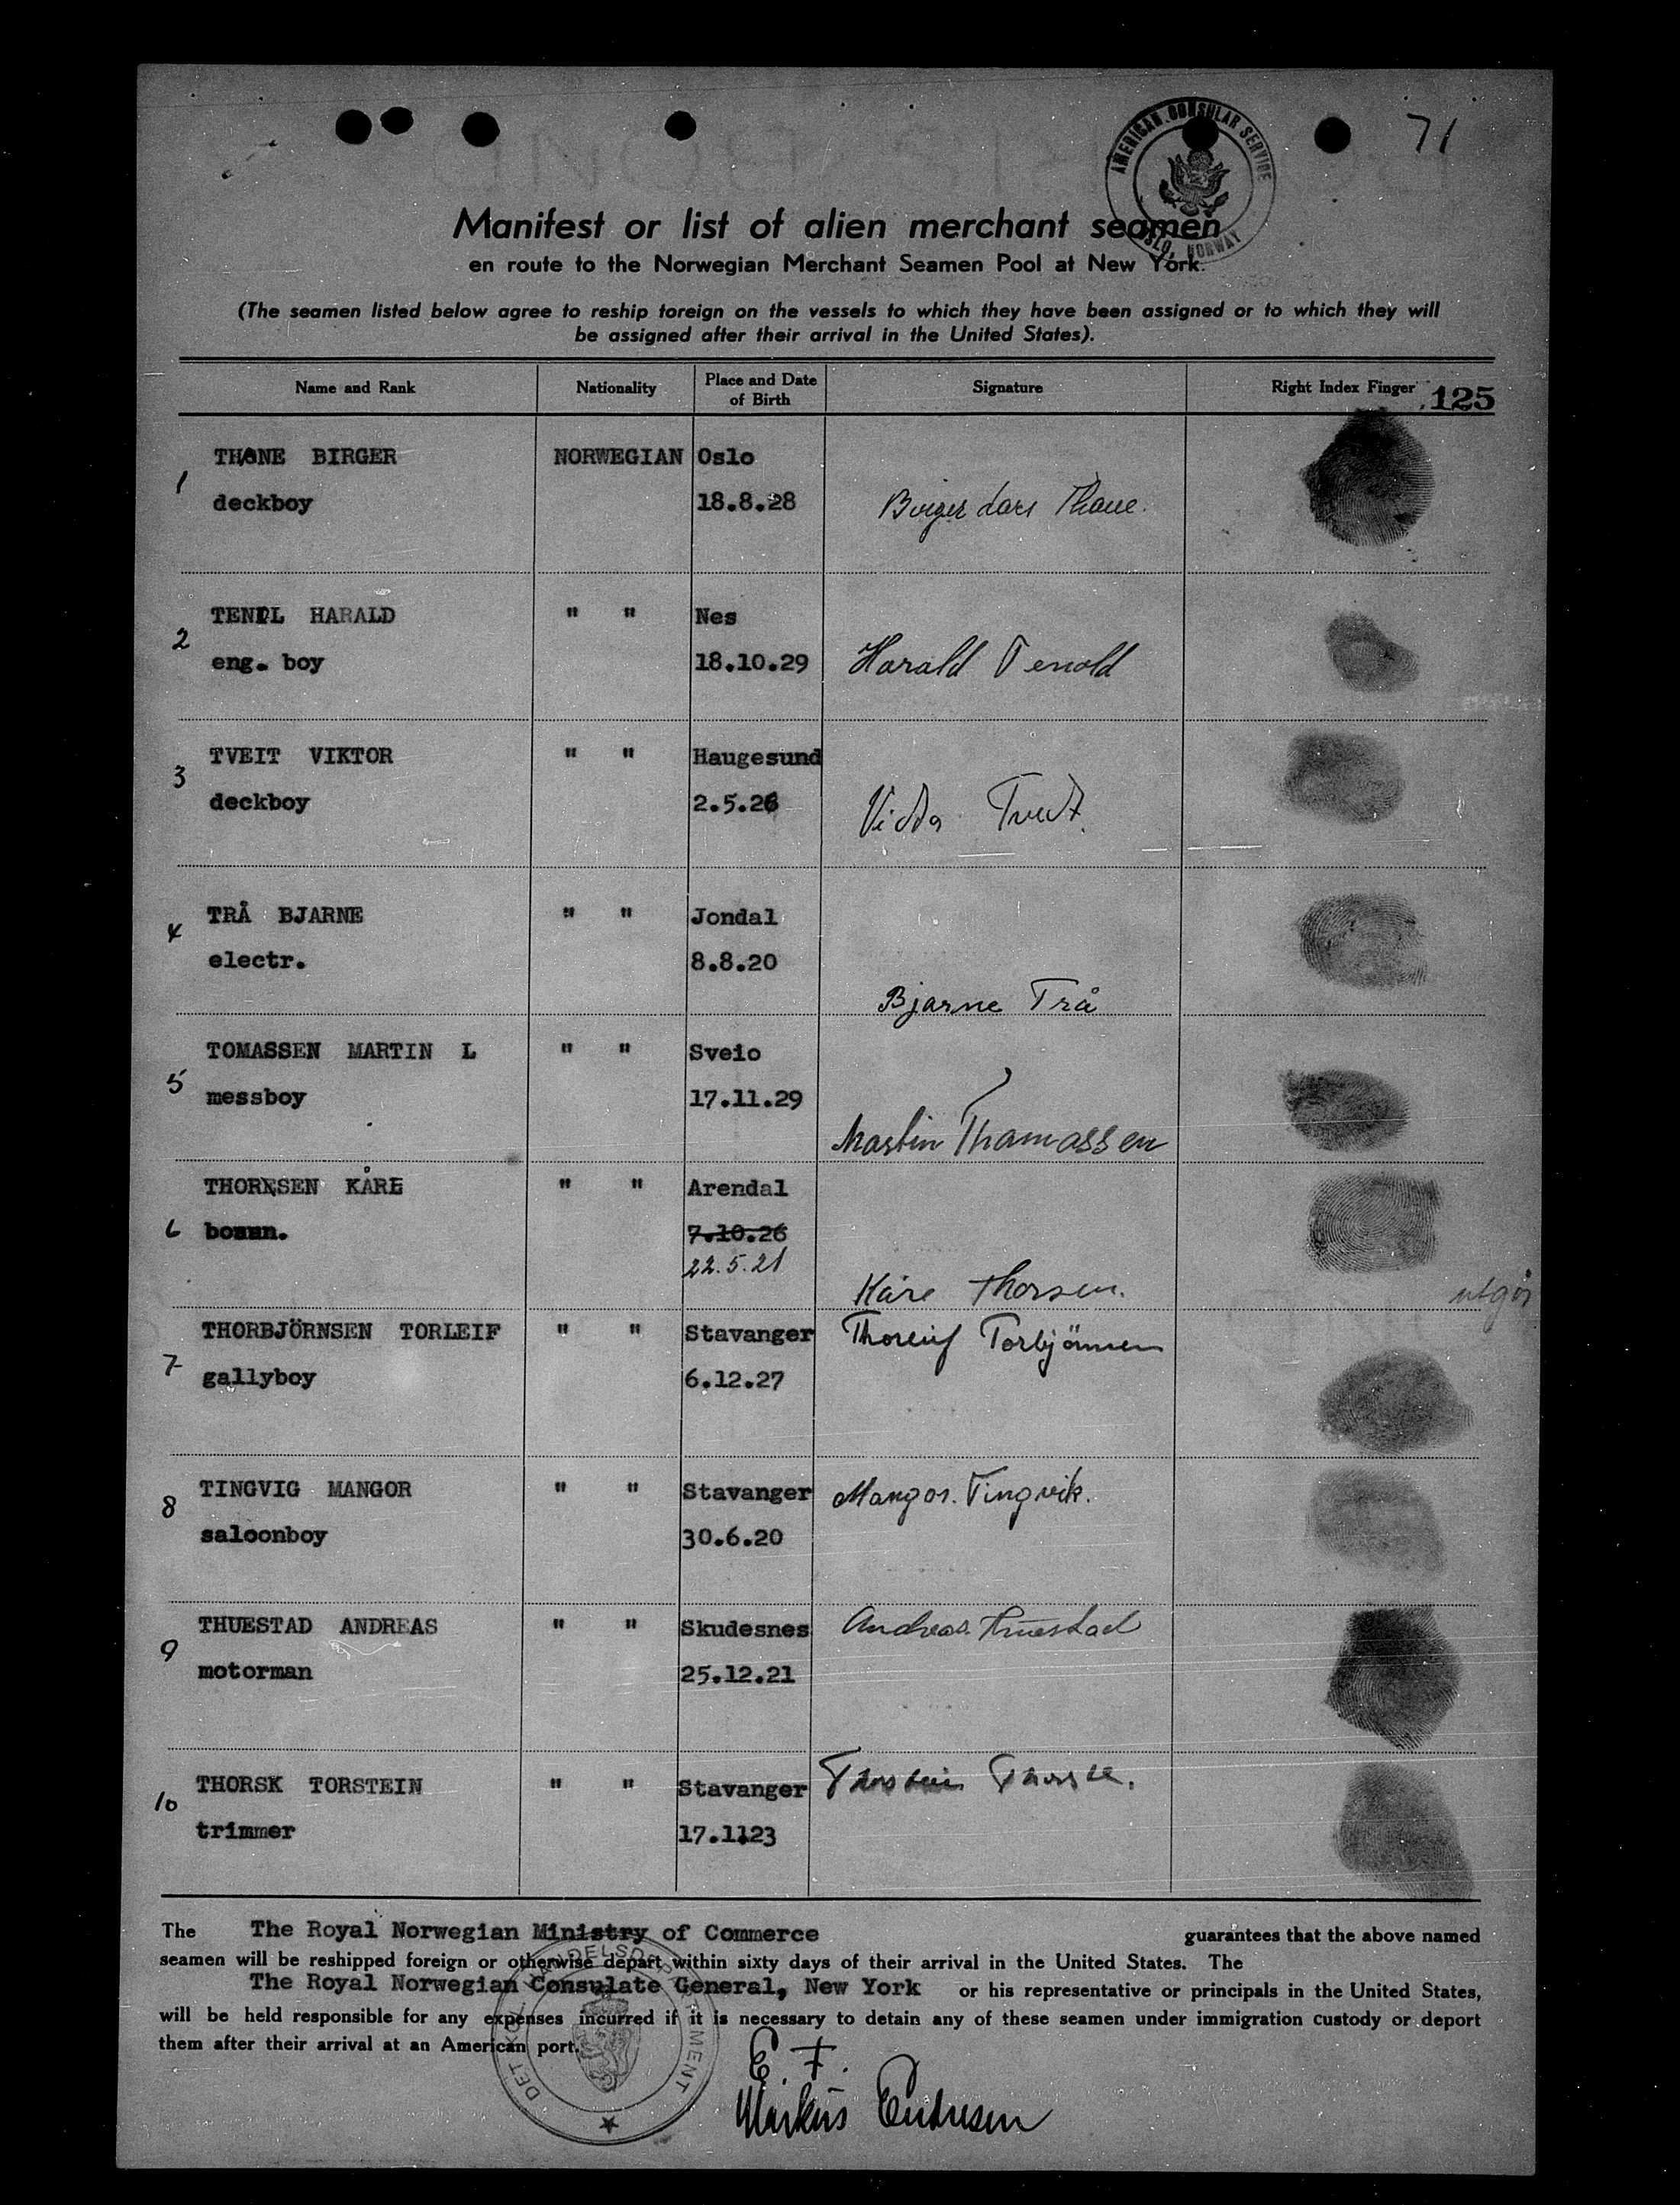 71
AMERICAN CONSULAR SERVICE
OSLO, NORWAY
Manifest or list of alien merchant seamen
en route to the Norwegian Merchant Seamen Pool at New York.
(The seamen listed below agree to reship foreign on the vessels to which they have been assigned or to which they will
be assigned after their arrival in the United States).
Name and Rank Nationality Place and Date of Birth Signature Right Index Finger 125
1 THANE BIRGER NORWEGIAN Oslo
deckboy 18.8.28 Birger Lars Thane.
2 HARALD " " Nes
eng. boy 18.10.29 Harald Tenold
3 TVEIT VIKTOR " " Haugesund
deckboy 2.5.26 Tveit
4 TRÅ BJARNE " " Jondal
electr. 8.8.20
Bjarne Trå
5 TOMASSEN MARTIN L " " Sveio
messboy 17.11.29
Martin Thomassen
6 THORSEN KÅRE " " Arendal
bosun. 7.10.26
22.5.21
Kåre Thorsen.
utgår
7 THORBJÖRNSEN TORLEIF " " Stavanger Thorleif Torbjörnsen
gallyboy 6.12.27
8 TINGVIG MANGOR " " Stavanger Mangor. Tingvik.
saloonboy 30.6.20
9 THUESTAD ANDREAS " " Skudesnes Andreas Thuestad
motorman 25.12.21
10 THORSK TORSTEIN " " Stavanger Thorstein
trimmer 17.1123
The The Royal Norwegian Ministry of Commerce guarantees that the above named
seamen will be reshipped foreign or otherwise depart within sixty days of their arrival in the United States. The
The Royal Norwegian Consulate General, New York or his representative or principals in the United States,
will be held responsible for any expenses incurred if it is necessary to detain any of these seamen under immigration custody or deport
them after their arrival at an American port.
E. F.
Markus Endresen